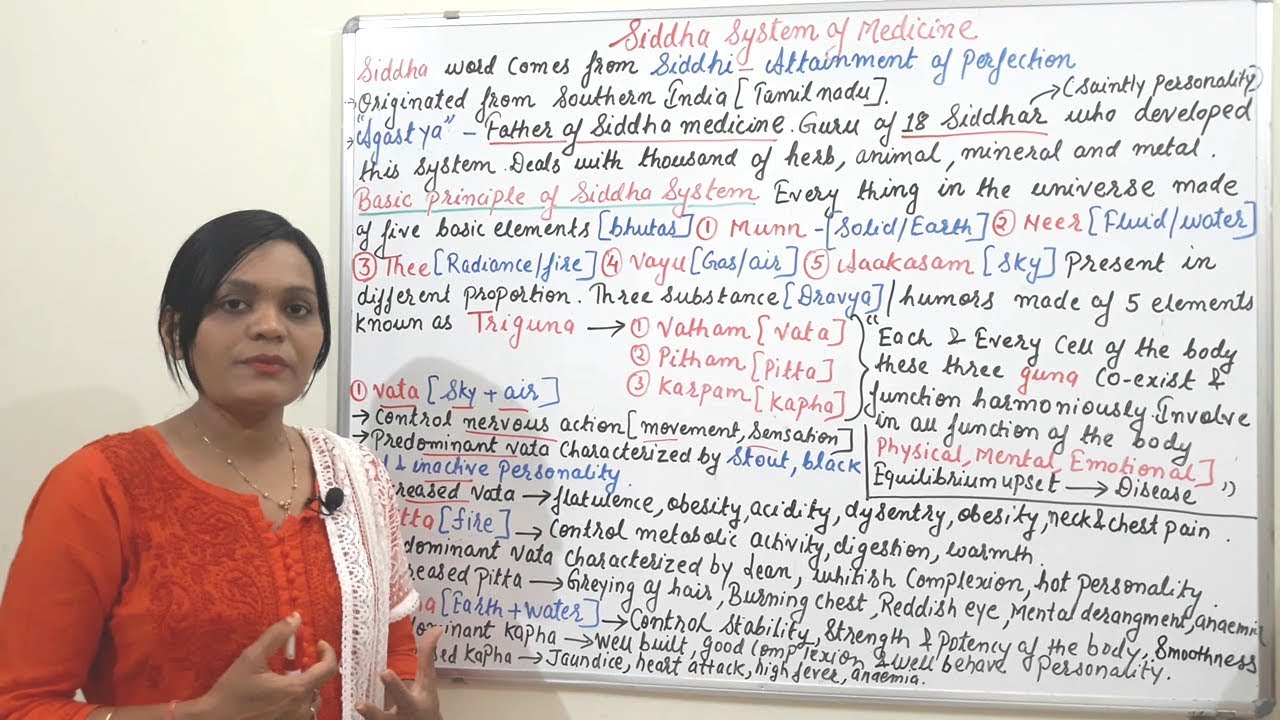 Siddha System of Medicine
Siddha word comes from Siddhi - Attainment of Perfection
→ Originated from Southern India [Tamilnadu].
(Saintly Personality)
→ "Agastya" - Father of Siddha medicine. Guru of 18 Siddhar who developed
this system. Deals with thousand of herb, animal, mineral and metal.
Basic principle of Siddha System Every thing in the universe made
of five basic elements [bhutas] ① Munn - [Solid/Earth] ② Neer [Fluid/water]
③ Thee [Radiance/fire] ④ Vayu [Gas/air] ⑤ Aaakasam [Sky] Present in
different proportion. Three substance [Dravya] / humors made of 5 elements
known as Triguna → ① Vatham [Vata]
② Pitham [Pitta]
③ Karpam [Kapha]
"Each & Every cell of the body
these three guna co-exist &
function harmoniously. Involve
in all function of the body
Physical, Mental, Emotional]
Equilibrium upset → Disease"
① Vata [Sky + air]
→ Control nervous action [movement, sensation]
→ Predominant vata characterized by Stout, black
& inactive Personality.
reased vata → flatulence, obesity, acidity, dysentry, obesity, neck & chest pain.
tta [fire] → Control metabolic activity, digestion, warmth.
dominant vata characterized by dean, whitish Complexion, hot personality.
reased Pitta → Greying of hair, Burning chest, Reddish eye, Mental derangment, anaemia
ha [Earth + water] → Control Stability, Strength & Potency of the body, Smoothness
dominant Kapha → well built, good complexion & well behave Personality.
sed Kapha → Jaundice, heart attack, high fever, anaemia.